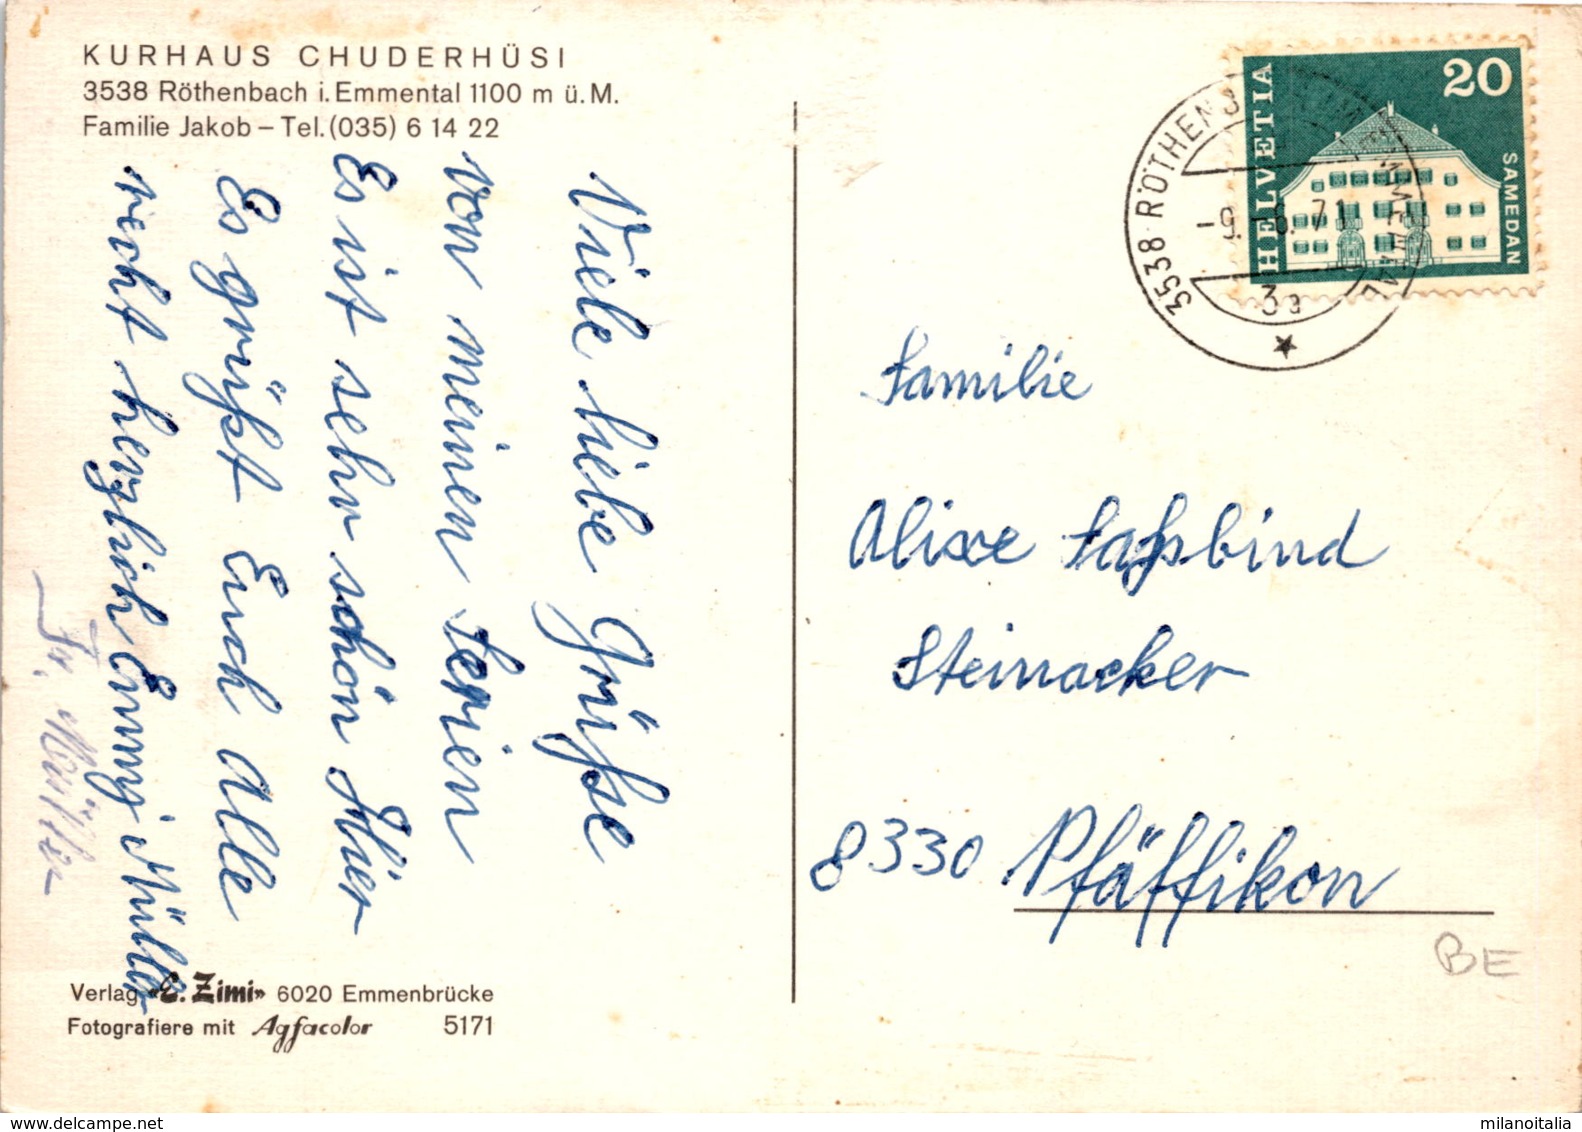 KURHAUS CHUDERHÜSI
3538 Röthenbach i. Emmental 1100 m ü. M.
Familie Jakob – Tel. (035) 6 14 22
Viele liebe Grüsse
von meinen Ferien
Es ist sehr schön Hier
Es grüsst Euch Alle
recht herzlich Emmy Müller
Fr. Müller
Verlag «E. Zimi» 6020 Emmenbrücke
Fotografiere mit Agfacolor 5171
HELVETIA
20
SAMEDAN
3538 RÖTHENBACH IM EMMENTAL
-9.-6.71
3a
Familie
Alixe Fassbind
Steinacker
8330 Pfäffikon
BE
milanoitalia